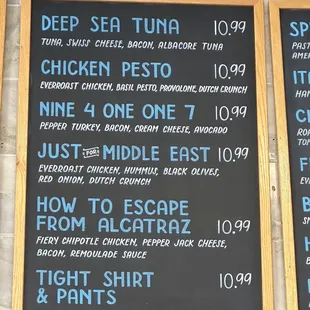 DEEP SEA TUNA 10.99
TUNA, SWISS CHEESE, BACON, ALBACORE TUNA
CHICKEN PESTO 10.99
EVERROAST CHICKEN, BASIL PESTO, PROVOLONE, DUTCH CRUNCH
NINE 4 ONE ONE 7 10.99
PEPPER TURKEY, BACON, CREAM CHEESE, AVOCADO
JUST FOR MIDDLE EAST 10.99
EVERROAST CHICKEN, HUMMUS, BLACK OLIVES,
RED ONION, DUTCH CRUNCH
HOW TO ESCAPE
FROM ALCATRAZ 10.99
FIERY CHIPOTLE CHICKEN, PEPPER JACK CHEESE,
BACON, REMOULADE SAUCE
TIGHT SHIRT 10.99
& PANTS